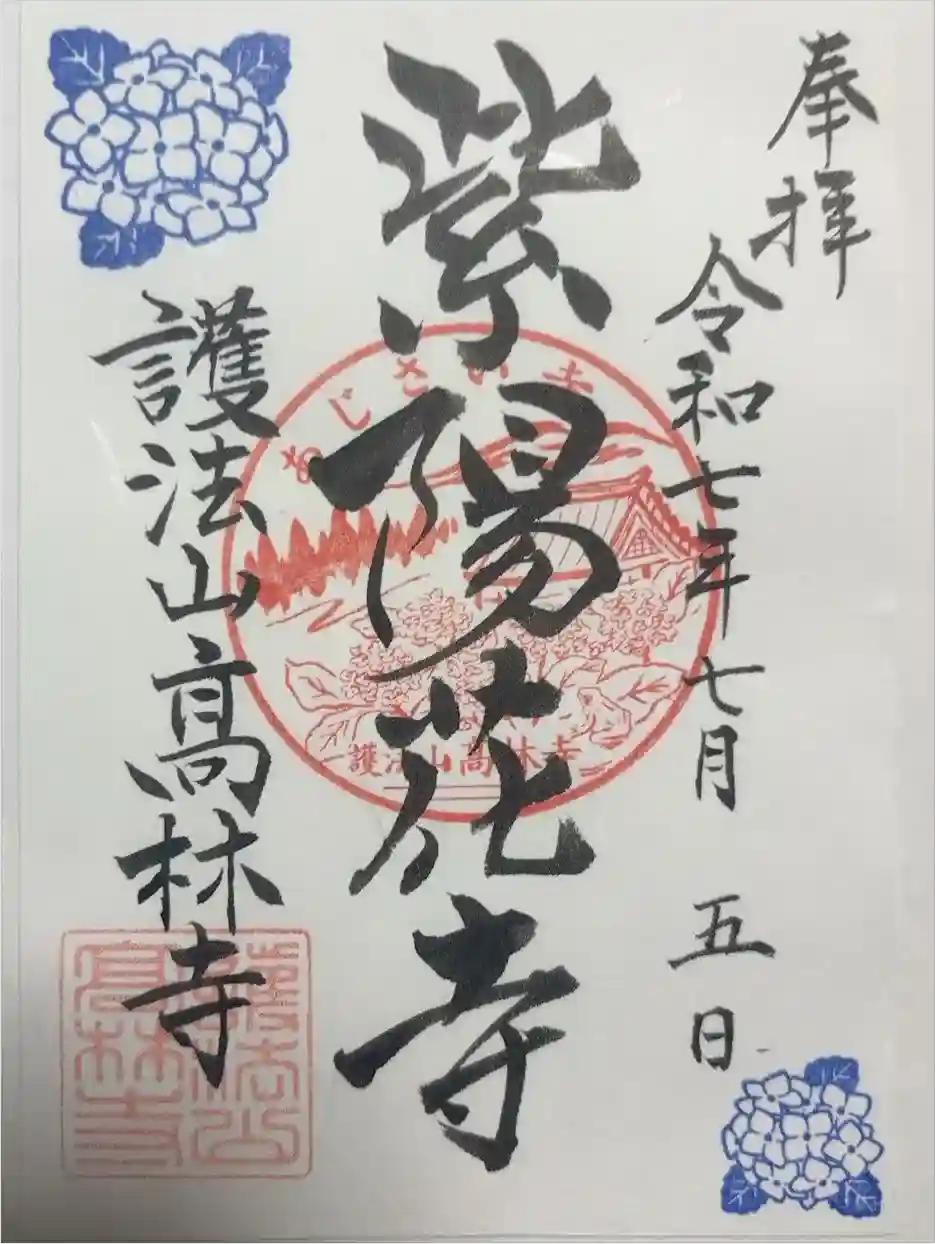 奉拝
令和七年七月五日
紫陽花寺
あじさい寺
護法山高林寺
護法山髙林寺
護法山高林寺